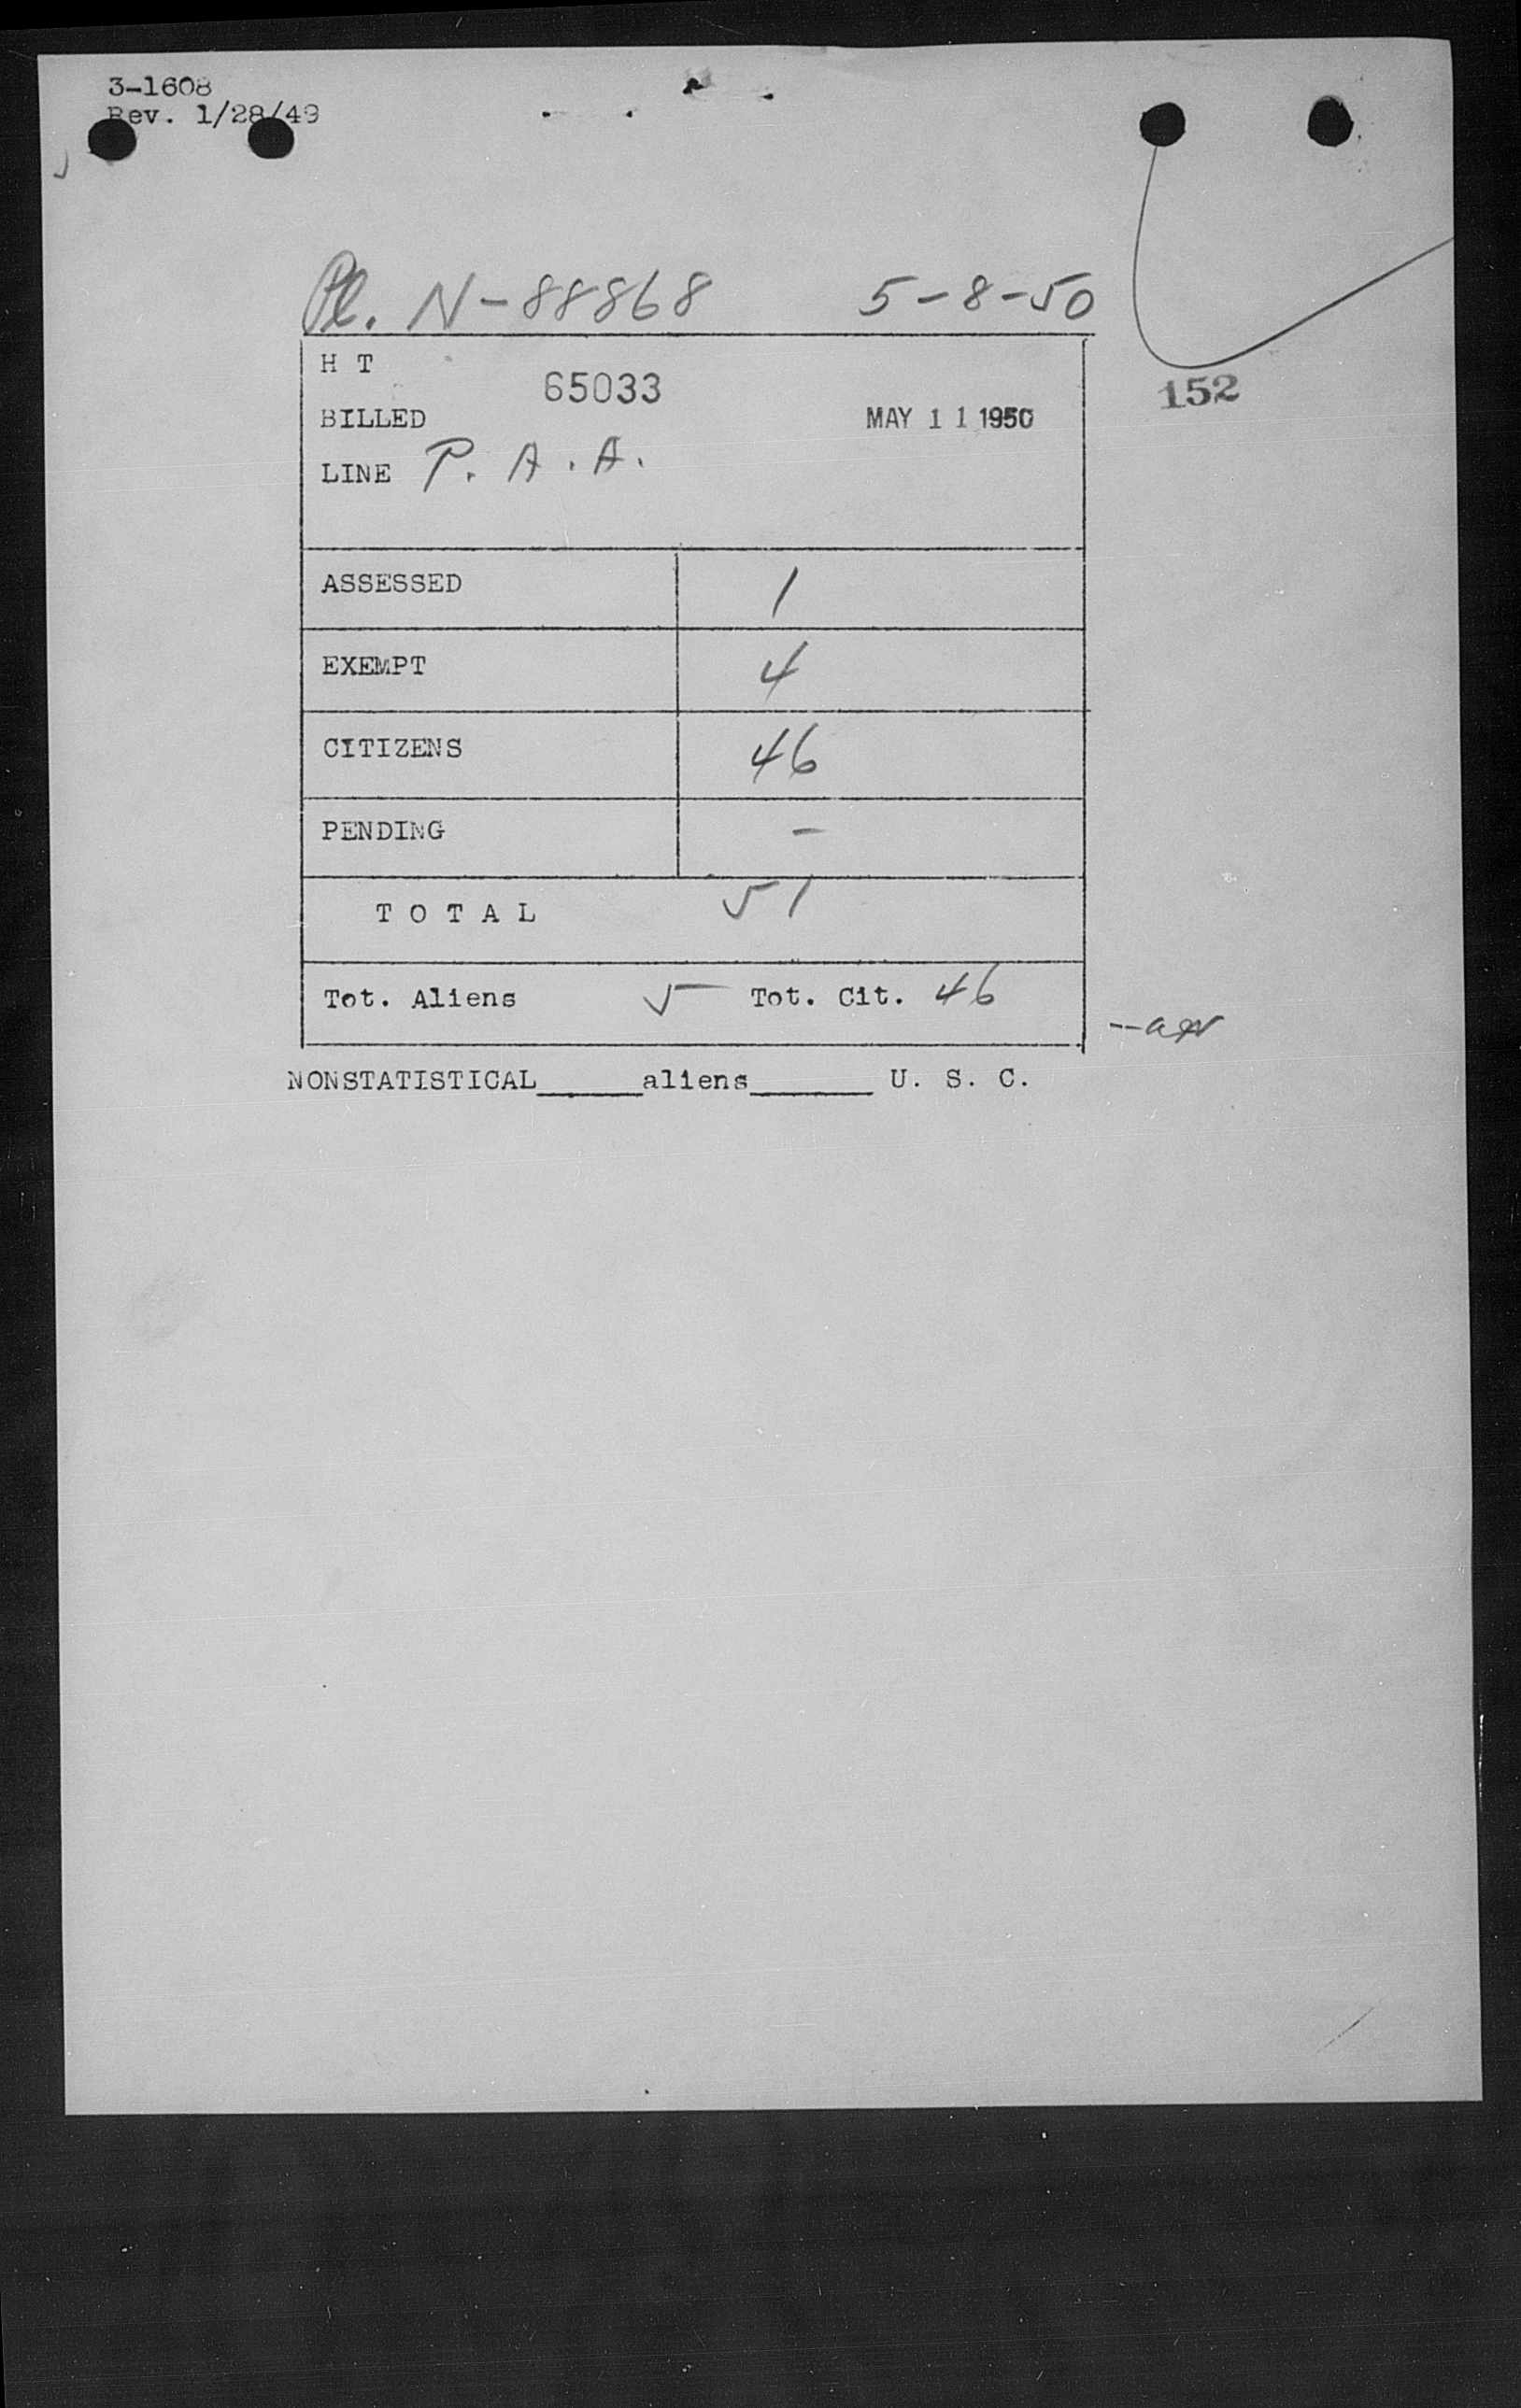 3-1608
Rev. 1/28/49
Pl. N-88868 5-8-50
H T
65033
152
BILLED MAY 11 1950
LINE P. A. A.
ASSESSED 1
EXEMPT 4
CITIZENS 46
PENDING -
T O T A L 51
Tot. Aliens 5 Tot. Cit. 46
NONSTATISTICAL______aliens_______ U. S. C.